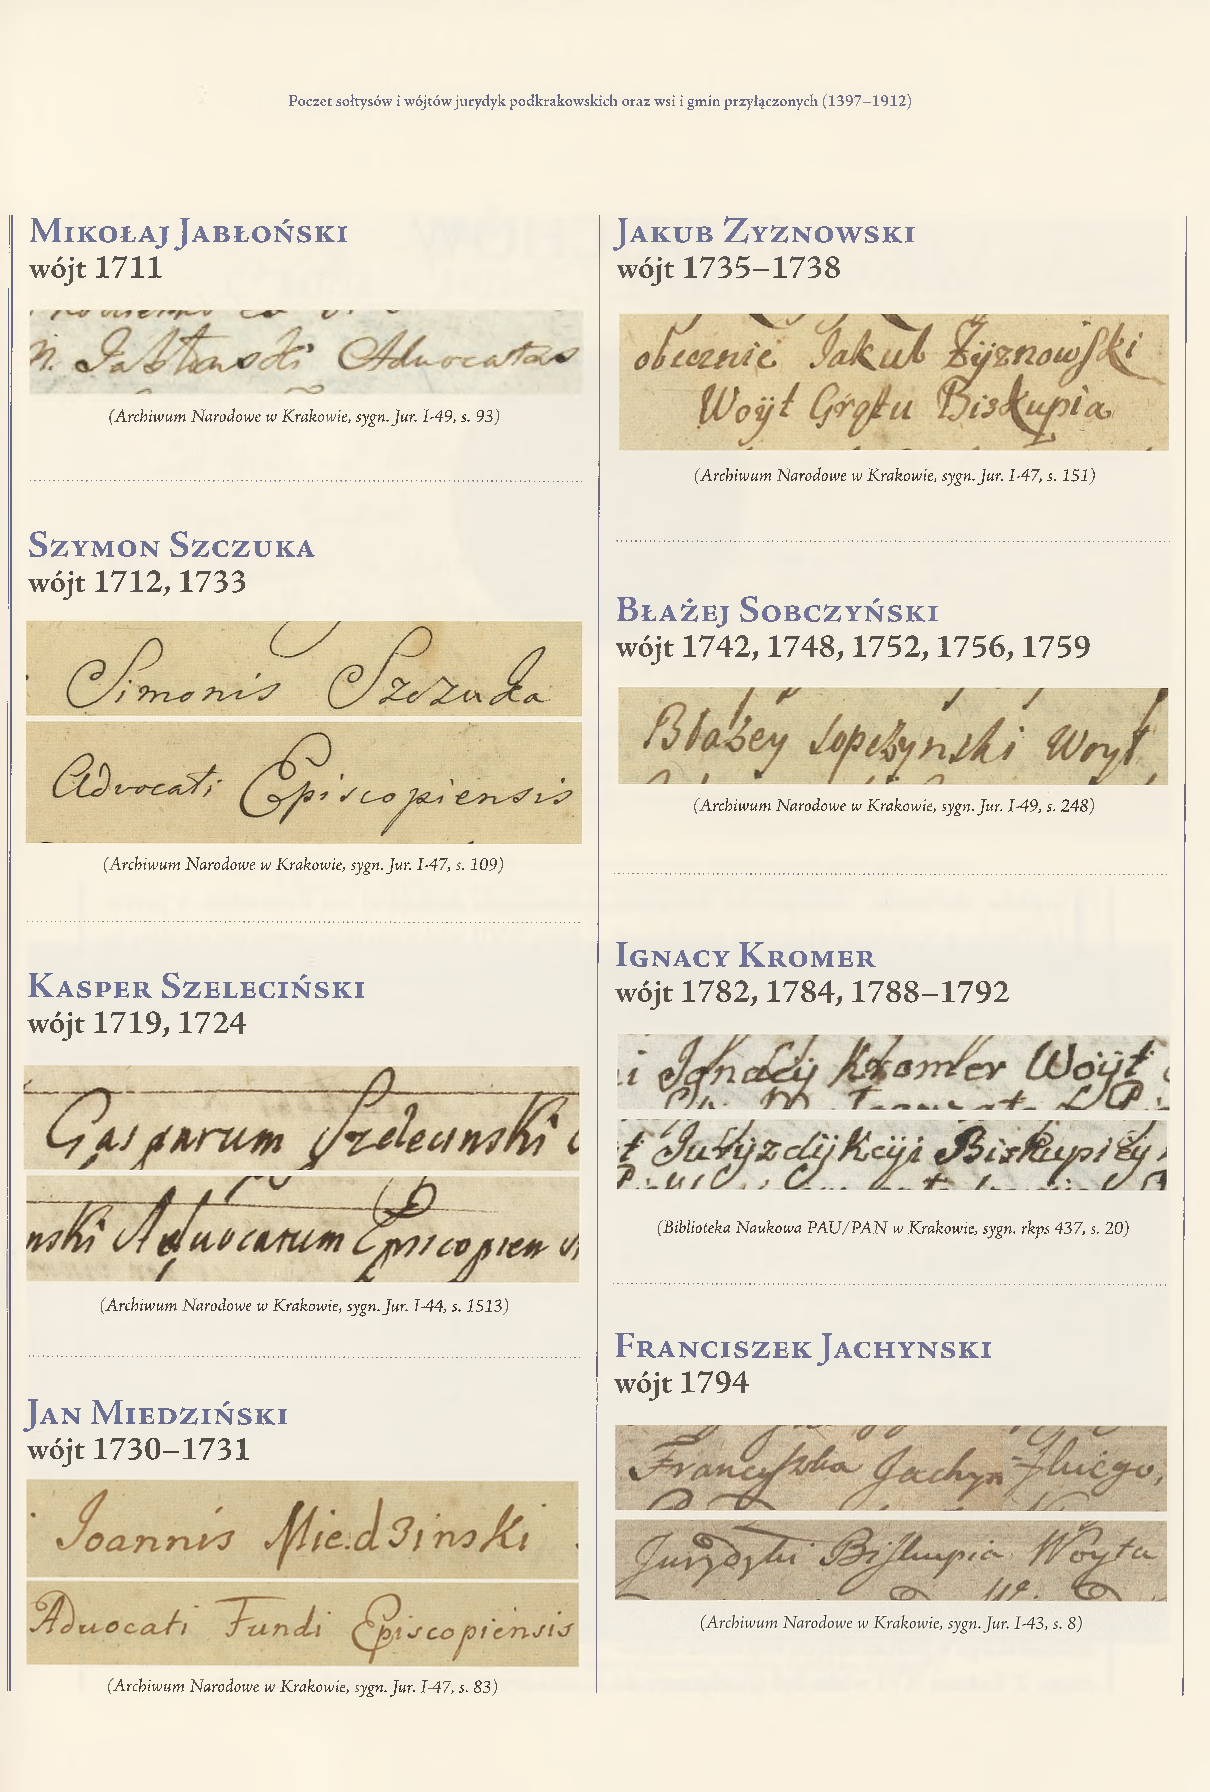 Poczet sołtysów i wójtów jurydyk podkrakowskich oraz wsi i gmin przyłączonych (1397–1912)
Mikołaj Jabłoński
wójt 1711
n. Jabłonski Advocatus
(Archiwum Narodowe w Krakowie, sygn. Jur. I-49, s. 93)
Szymon Szczuka
wójt 1712, 1733
Simonis Szczuka
Advocati Episcopiensis
(Archiwum Narodowe w Krakowie, sygn. Jur. I-47, s. 109)
Kasper Szeleciński
wójt 1719, 1724
Gasparum Szelecinski
nski Advocatum Episcopien
(Archiwum Narodowe w Krakowie, sygn. Jur. I-44, s. 1513)
Jan Miedziński
wójt 1730–1731
Joannis Miedzinski
Advocati Fundi Episcopiensis
(Archiwum Narodowe w Krakowie, sygn. Jur. I-47, s. 83)
Jakub Zyznowski
wójt 1735–1738
obecznie Jakub Zyznowski
Woyt Grątu Biskupia
(Archiwum Narodowe w Krakowie, sygn. Jur. I-47, s. 151)
Błażej Sobczyński
wójt 1742, 1748, 1752, 1756, 1759
Błażey Sopczynski Woyt
(Archiwum Narodowe w Krakowie, sygn. Jur. I-49, s. 248)
Ignacy Kromer
wójt 1782, 1784, 1788–1792
i Ignacÿ Kromer Woÿt
t Juryzdÿkcÿi Biskupieÿ
(Biblioteka Naukowa PAU/PAN w Krakowie, sygn. rkps 437, s. 20)
Franciszek Jachynski
wójt 1794
Franciszka Jachynskiego,
Juryzdyki Biskupia Woyta
(Archiwum Narodowe w Krakowie, sygn. Jur. I-43, s. 8)